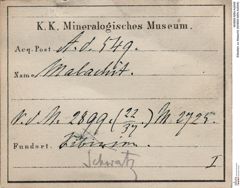 K. K. Mineralogisches Museum.
Acq. Post A. d. 549.
Name Malachit.
V. d. M. 2899. (22/37) M. 2725.
Fundort.
Schwatz
I